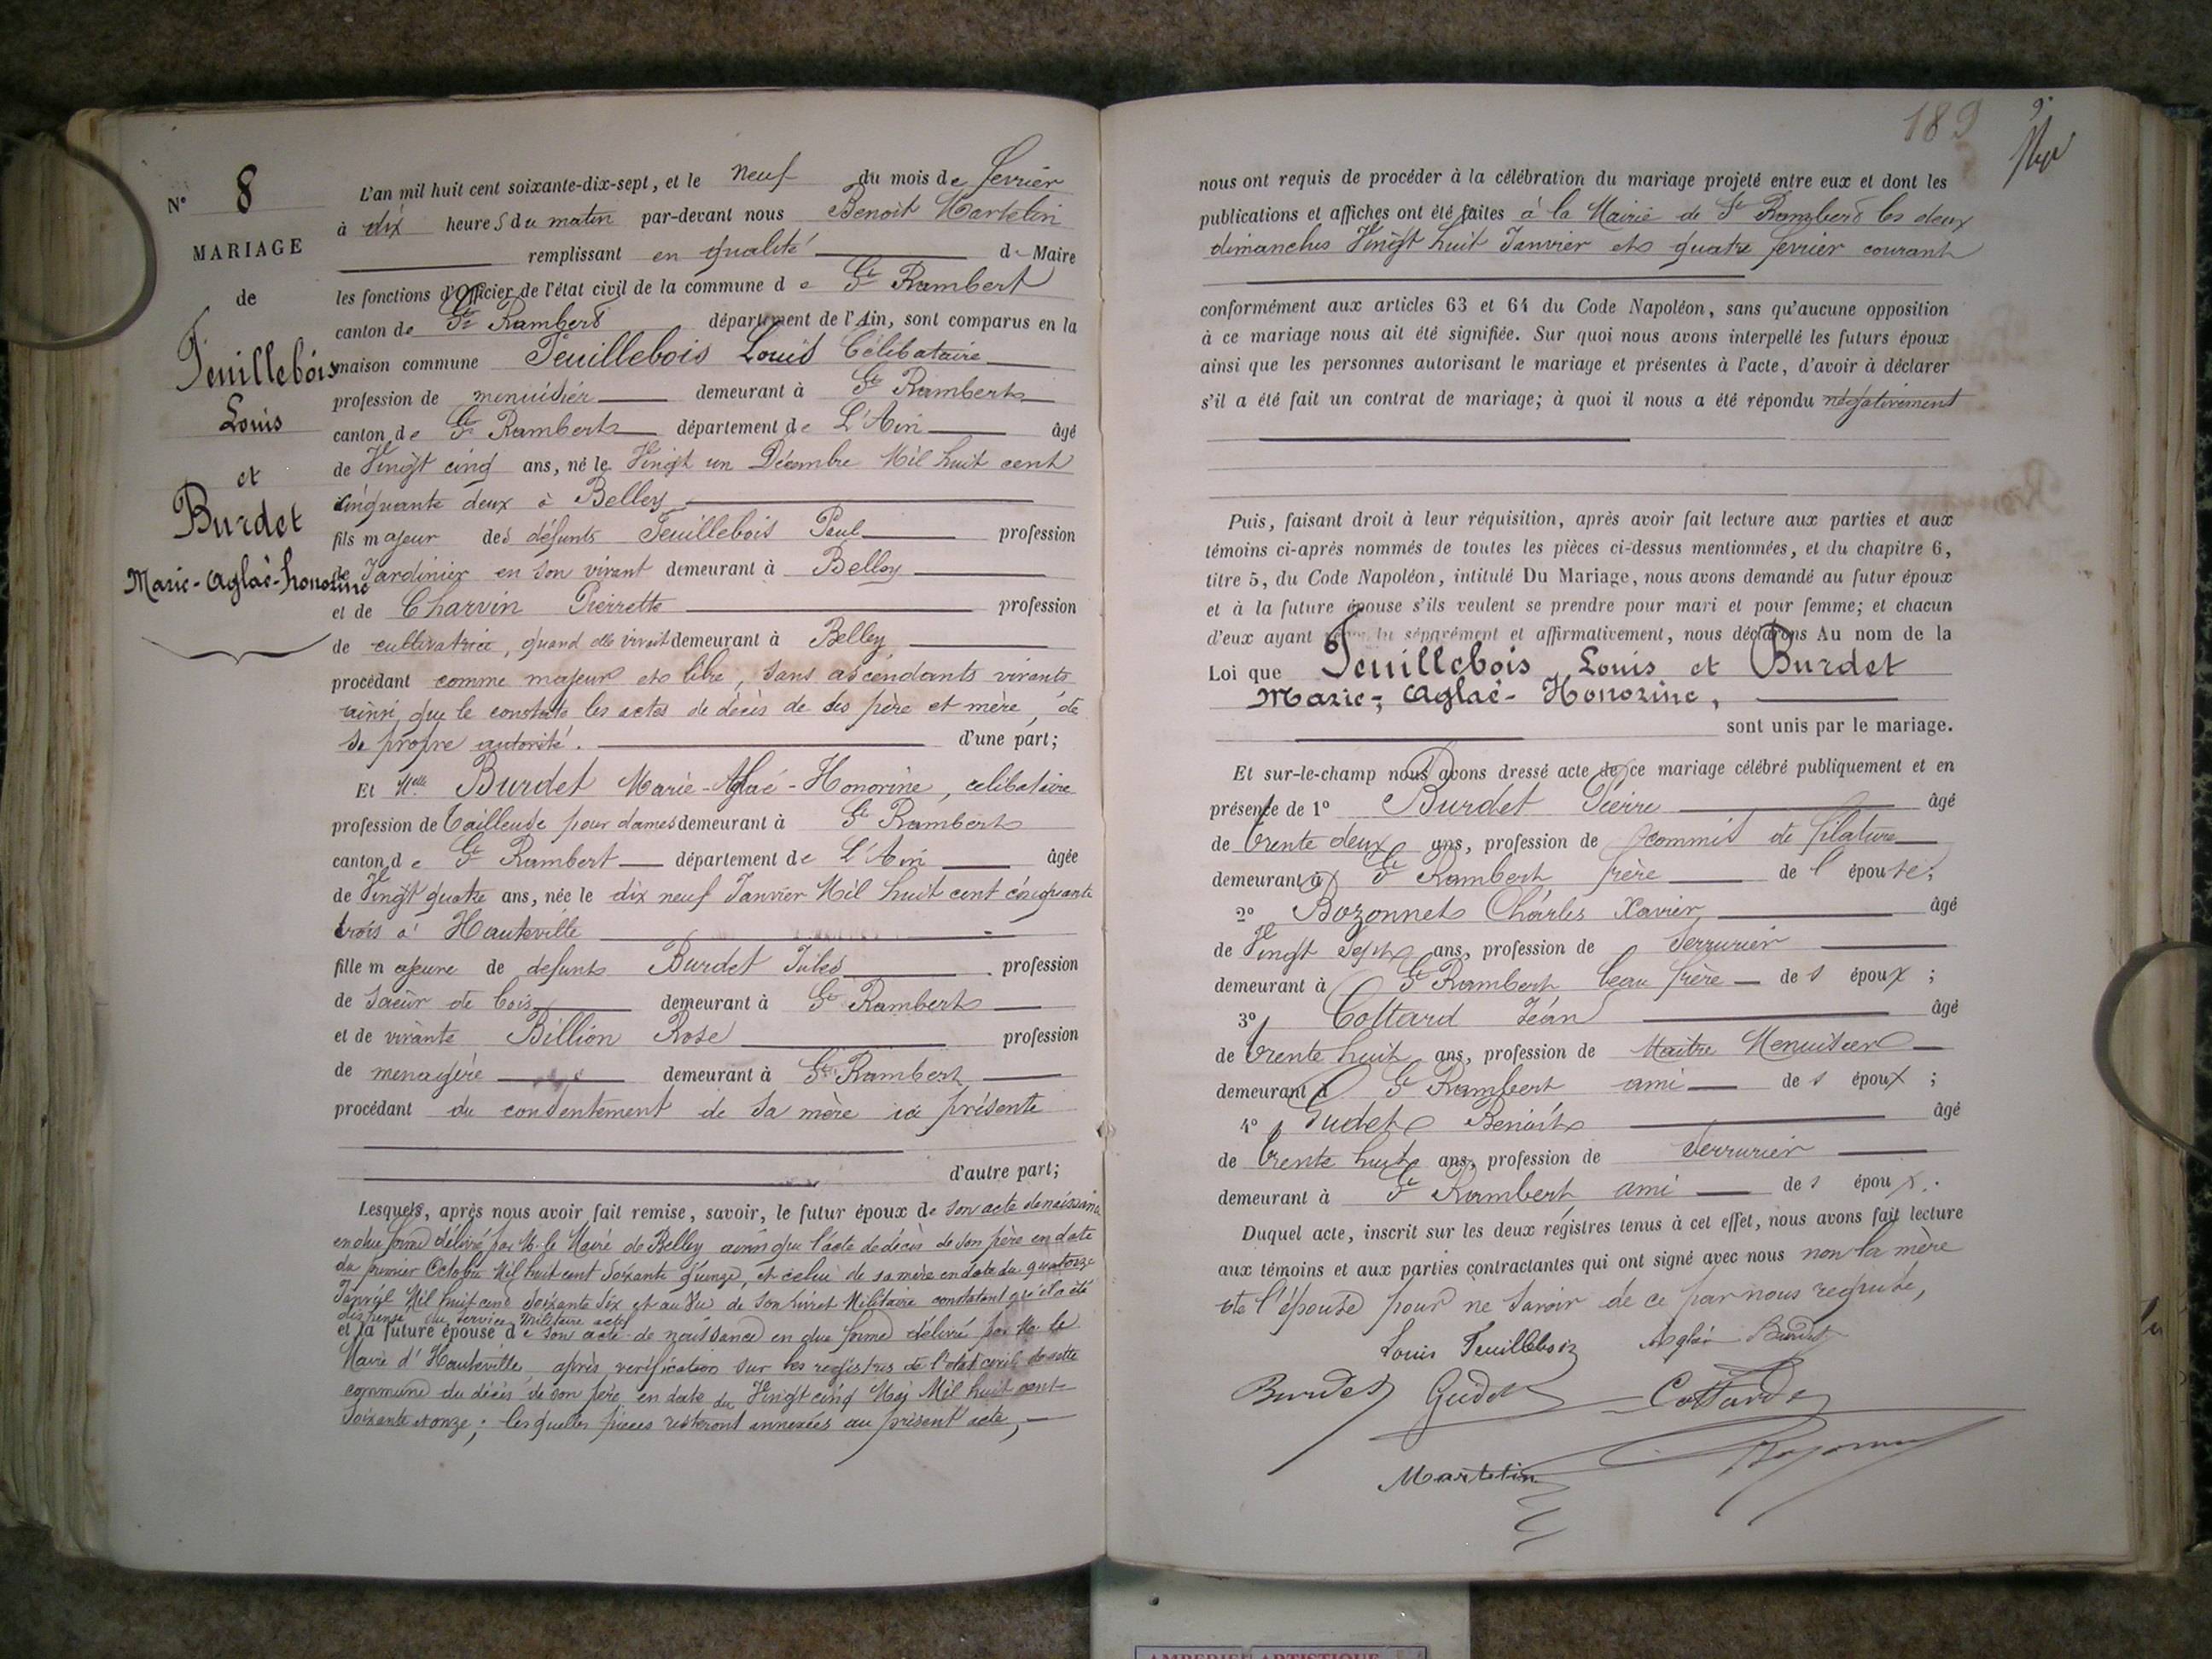 N° 8
MARIAGE
de
Feuillebois
Louis
et
Burdet
Marie-Aglaé-honorine
L'an mil huit cent soixante-dix-sept, et le neuf du mois de fevrier
à dix heures du matin par-devant nous Benoit Martelin
remplissant en qualité de Maire
les fonctions d'Officier de l'état civil de la commune de St Rambert
canton de St Rambert département de l'Ain, sont comparus en la
maison commune Feuillebois Louis Célibataire
profession de menuisier demeurant à St Rambert
canton de St Rambert département de L'Ain âgé
de Vingt cinq ans, né le Vingt un Décembre Mil huit cent
cinquante deux à Belley
fils majeur des défunts Feuillebois Paul profession
de Jardinier en son vivant demeurant à Belley
et de Charvin Pierrette profession
de cultivatrice, quand elle vivait demeurant à Belley
procédant comme majeur et libre, sans ascendants vivants
ainsi que le constate les actes de décès de ses père et mère, de
sa propre autorité. d'une part;
Et Melle Burdet Marie-Aglaé-Honorine, celibataire
profession de Tailleuse pour dames demeurant à St Rambert
canton de St Rambert département de L'Ain âgée
de Vingt quatre ans, née le dix neuf Janvier Mil huit cent cinquante
trois à Hauteville
fille majeure de defunt Burdet Jules profession
de scieur de bois demeurant à St Rambert
et de vivante Billion Rose profession
de menagère demeurant à St Rambert
procédant du consentement de sa mère ici présente
d'autre part;
Lesquels, après nous avoir fait remise, savoir, le futur époux de son acte de naissance
en due forme délivré par M. le Maire de Belley ainsi que l'acte de décès de son père en date
du premier Octobre Mil huit cent soixante quinze, et celui de sa mère en date du quatorze
d'avril Mil huit cent soixante six et au vu de son livret Militaire constatant qu'il a été
dispensé du service militaire actif
et la future épouse de son acte de naissance en due forme délivré par M. le
Maire d'Hauteville, après verification sur les registres de l'état civil de cette
commune du décès de son père en date du Vingt cinq Mai Mil huit cent
Soixante et onze; lesquelles pièces resteront annexées au présent acte,
189
nous ont requis de procéder à la célébration du mariage projeté entre eux et dont les
publications et affiches ont été faites à la Mairie de St Rambert les deux
dimanches Vingt huit Janvier et quatre fevrier courant
conformément aux articles 63 et 64 du Code Napoléon, sans qu'aucune opposition
à ce mariage nous ait été signifiée. Sur quoi nous avons interpellé les futurs époux
ainsi que les personnes autorisant le mariage et présentes à l'acte, d'avoir à déclarer
s'il a été fait un contrat de mariage; à quoi il nous a été répondu négativement
Puis, faisant droit à leur réquisition, après avoir fait lecture aux parties et aux
témoins ci-après nommés de toutes les pièces ci-dessus mentionnées, et du chapitre 6,
titre 5, du Code Napoléon, intitulé Du Mariage, nous avons demandé au futur époux
et à la future épouse s'ils veulent se prendre pour mari et pour femme; et chacun
d'eux ayant séparément et affirmativement, nous déclarons Au nom de la
Loi que Feuillebois Louis et Burdet
Marie-Aglaé-Honorine,
sont unis par le mariage.
Et sur-le-champ nous avons dressé acte de ce mariage célébré publiquement et en
présence de 1° Burdet Pierre âgé
de trente deux ans, profession de commis de filature
demeurant à St Rambert frère de l'épouse;
2° Bozonnet Charles Xavier âgé
de Vingt sept ans, profession de Serrurier
demeurant à St Rambert beau frère des époux;
3° Cottard Jean âgé
de trente huit ans, profession de Maitre Menuisier
demeurant à St Rambert ami des époux;
4° Gudet Benoit âgé
de trente huit ans, profession de Serrurier
demeurant à St Rambert ami des époux.
Duquel acte, inscrit sur les deux régistres tenus à cet effet, nous avons fait lecture
aux témoins et aux parties contractantes qui ont signé avec nous non la mère
de l'épouse pour ne savoir de ce par nous requise,
Louis Feuillebois Aglaé Burdet
Burdet Gudet Cottard
Martelin Bozonnet
AMBERIEU ARTISTIQUE